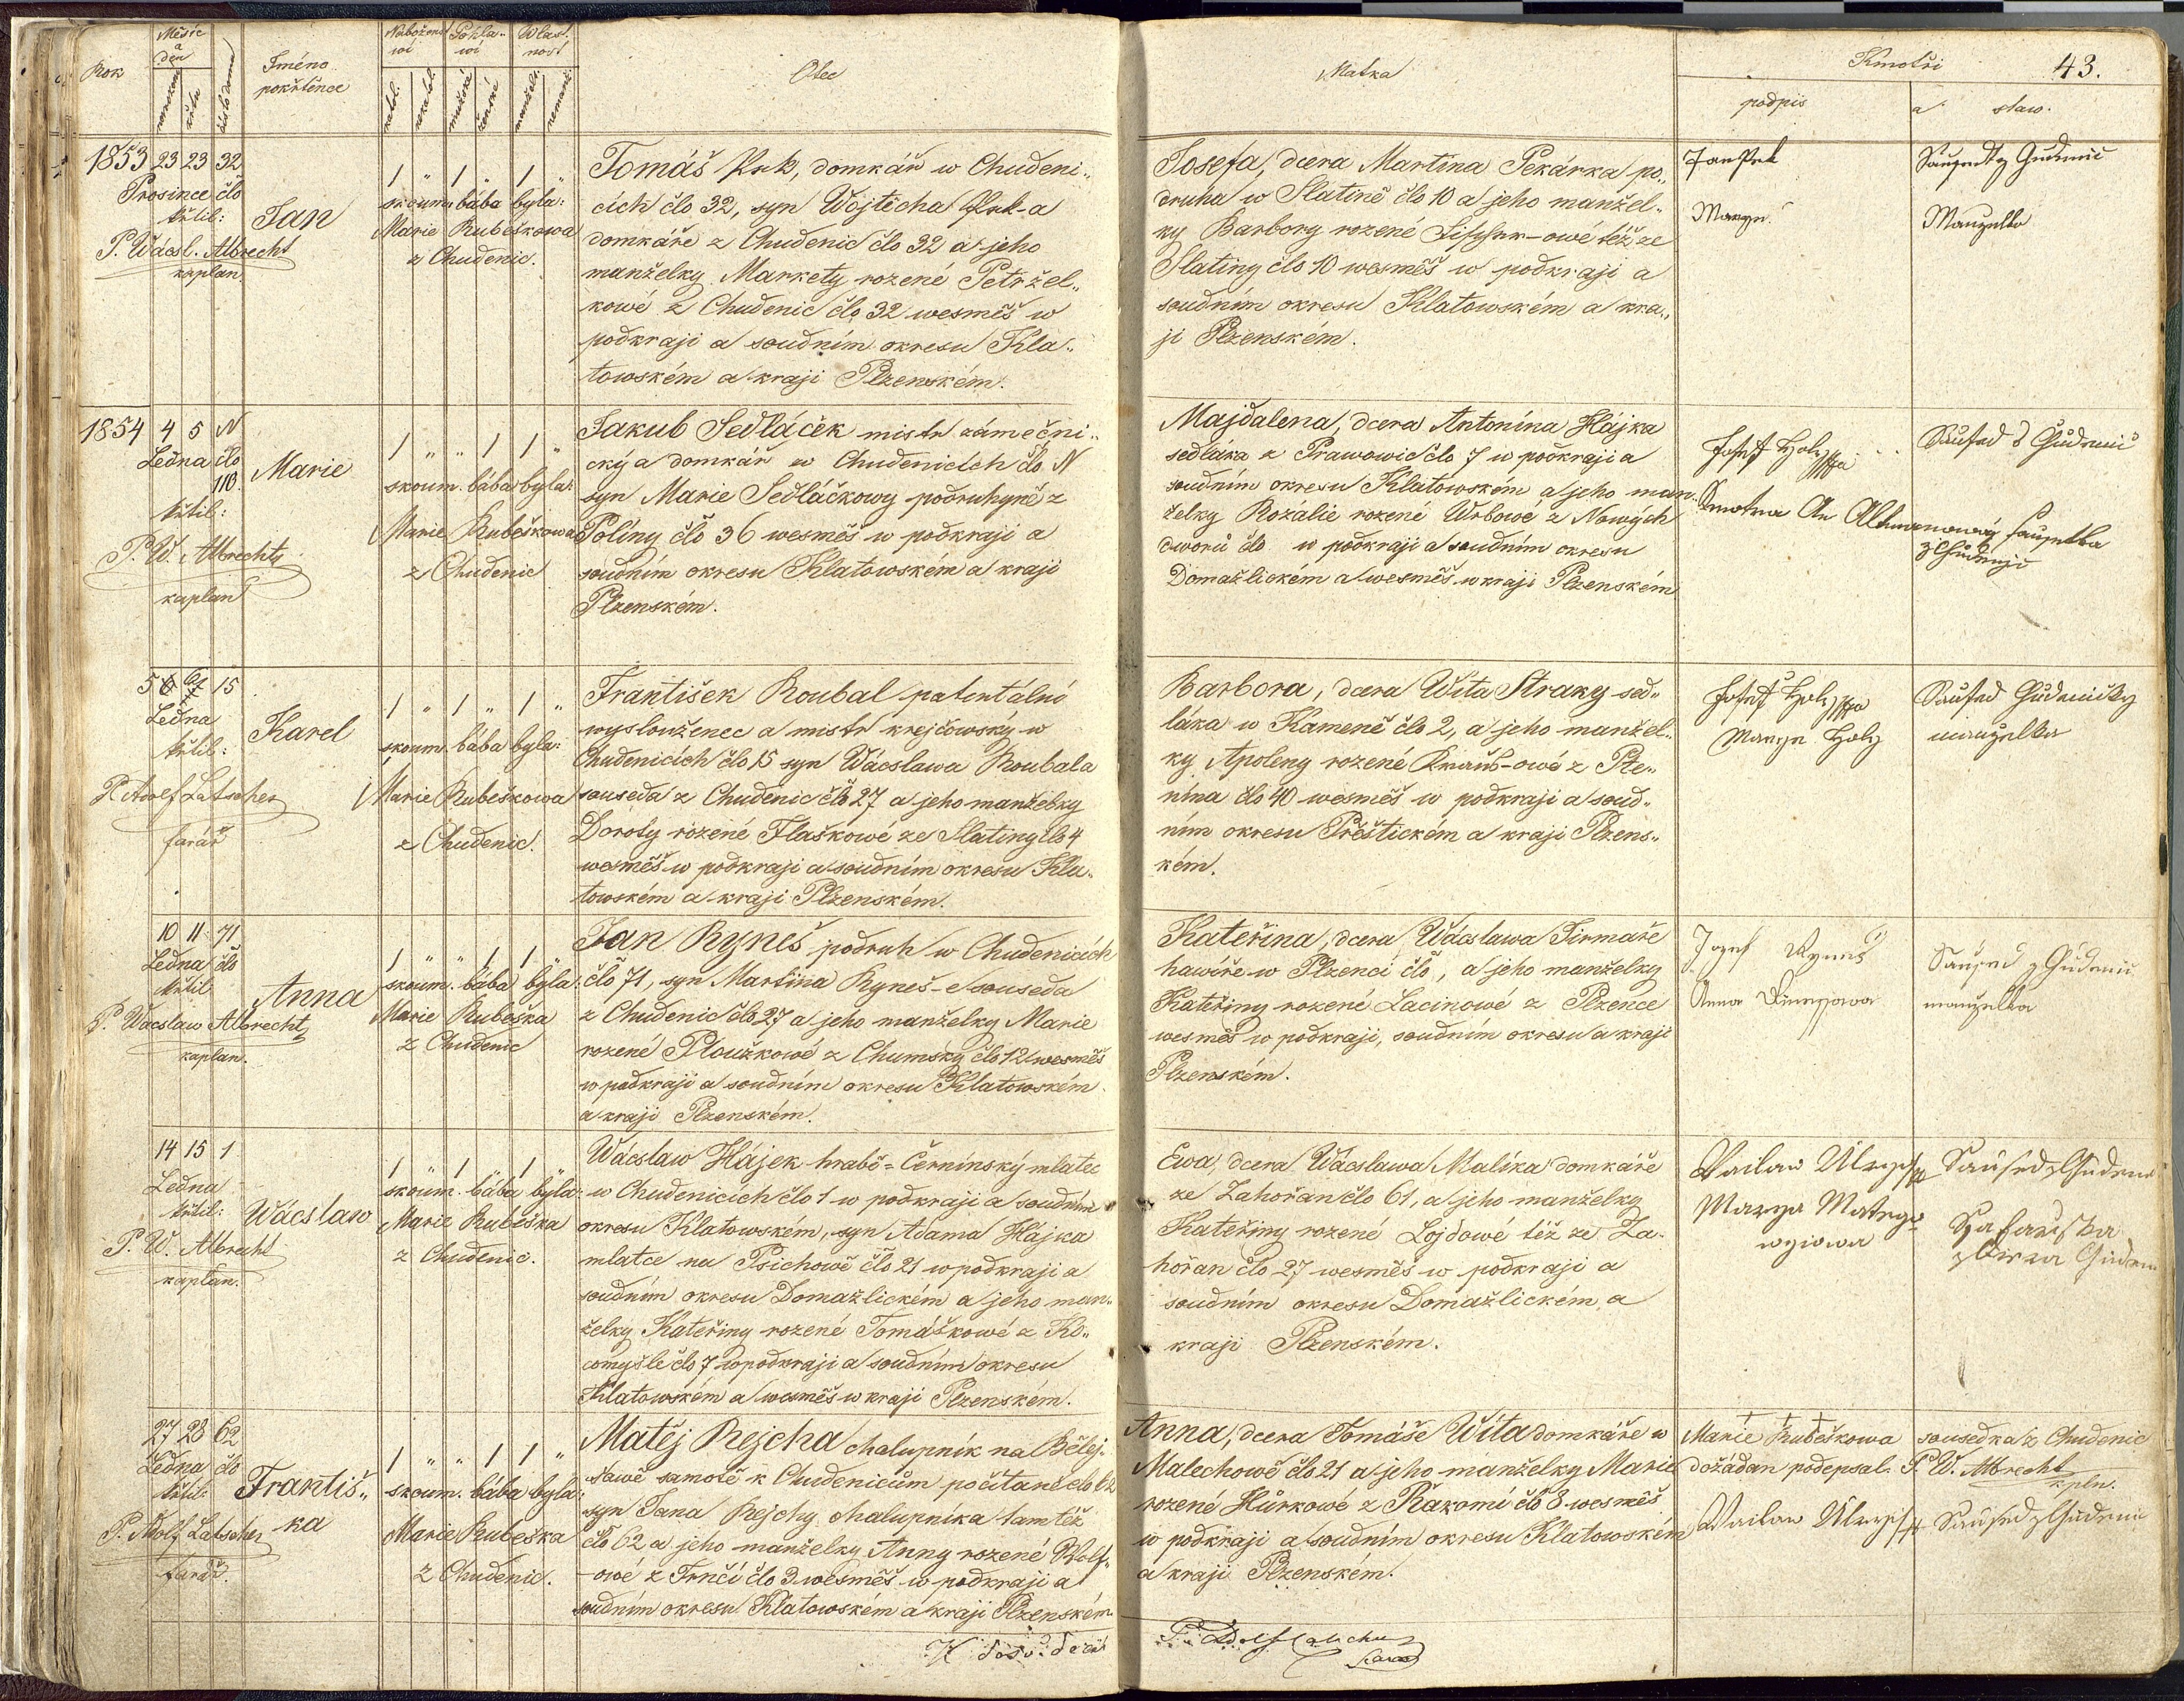 Rok
Měsíc
a
den
narození
křtu
číslo domu
Jméno
pokřtěnce
Nábožen.
wí
katol.
nekatol.
Pohla-
wí
mužské
ženské
Wlast.
nost
manžel.
nemanž.
Otec
Matka
Kmotři
43.
podpis
a
staw.
1853 23 23 32
Prosince člo
křtil:
P. Wácsl. Albrecht
kaplan.
Jan
1 " 1 " 1 "
skoum. bába byla:
Marie Rubeškowa
z Chudenic.
Tomáš Prk, domkář w Chudeni„
cích člo 32, syn Wojtěcha Prk-a
domkáře z Chudenic člo 32 a jeho
manželky Markety rozené Petržel„
kowé z Chudenic člo 32 wesměs w
podkraji a soudním okresu Kla„
towském a kraji Plzenském.
Josefa, dcera Martina Pekárka po„
druha w Slatině člo 10 a jeho manžel„
ky Barbory rozené -owé též ze
Slatiny člo 10 wesměs w podkraji a
soudním okresu Klatowském a kra„
ji Plzenském.
Jan Prk
1854 4 5 N
Ledna člo
110.
křtil:
P. W. Albrecht
kaplan
Marie
1 " " 1 1 "
skoum. bába byla:
Marie Rubeškowa
z Chudenic
Jakub Sedláček mistr zámečni„
cký a domkář w Chudenicích člo N
syn Marie Sedláčkowy podruhyně z
Poliny člo 36 wesměs w podkraji a
soudním okresu Klatowském a kraji
Plzenském.
Majdalena, dcera Antonína Hájka
sedláka z Prawowic člo 7 w podkraji a
soudním okresu Klatowském a jeho man„
želky Rozalie rozené Wrbowé z Nowých
dworů člo w podkraji a soudním okresu
Domažlickém a wesměs w kraji Plzenském
Josef Holz
5 6 15
Ledna
křtil:
P. Adolf Latscher
farář
Karel
1 " 1 " 1 "
skoum. bába byla:
Marie Rubeškowa
z Chudenic.
František Roubal patentalní
wyslouženec a mistr krejčowský w
Chudenicích člo 15 syn Wácslawa Roubala
souseda z Chudenic člo 27 a jeho manželky
Doroty rozené Flaškowé ze Slatiny člo 4
wesměs w podkraji a soudním okresu Kla„
towském a kraji Plzenském.
Barbora, dcera Wíta Straky sed„
láka w Kameně člo 2, a jeho manžel„
ky Apoleny rozené Krauš-owé z Pte„
nína člo 40 wesměs w podkraji a soud„
ním okresu Přeštickém a kraji Plzens„
kém.
Josef Holz
Marye Holz
10 11 71
Ledna člo
křtil
P. Wacslaw Albrecht
kaplan.
Anna
1 " " 1 1 "
skoum. bába byla:
Marie Rubeška
z Chudenic
Jan Ryneš podruh w Chudenicích
člo 71, syn Martina Ryneš-e souseda
z Chudenic člo 27 a jeho manželky Marie
rozené Ploužkowé z Chumsky člo 12 wesměs
w podkraji a soudním okresu Klatowském
a kraji Plzenském.
Kateřina, dcera Wácslawa Firmaře
hawíře w Plzenci člo , a jeho manželky
Kateřiny rozené Lacinowé z Plzence
wesměs w podkraji, soudním okresu a kraji
Plzenském.
Jozef Ryneš
Anna
14 15 1
Ledna
křtil:
P. W. Albrecht
kaplan.
Wácslaw
1 " 1 " 1 "
skoum. bába byla:
Marie Rubeška
z Chudenic.
Wácslaw Hájek hrabě-Černínský mlatec
w Chudenicích člo 1 w podkraji a soudním
okresu Klatowském, syn Adama Hájka
mlatce na Psichowě člo 21 w podkraji a
soudním okresu Domažlickém a jeho man„
želky Kateřiny rozené Tomáškowé z Ko„
comyšle člo 7 w podkraji a soudním okresu
Klatowském a wesměs w kraji Plzenském.
Ewa, dcera Wácslawa Malíka domkáře
ze Zahořan člo 61, a jeho manželky
Kateřiny rozené Lojdowé též ze Za-
hořan člo 27 wesměs w podkraji a
soudním okresu Domažlickém a
kraji Plzenském.
Marya
27 28 62
Ledna člo
křtil:
P. Adolf Latscher
farář.
Františ„
ka
1 " " 1 1 "
skoum. bába byla:
Marie Rubeška
z Chudenic.
Matěj Rejcha chalupník na Bělej-
šawě samotě k Chudenicům počítané člo 62
syn Jana Rejchy chalupníka tamtéž
člo 62 a jeho manželky Anny rozené Wolf„
-owé z Trnčí člo 3 wesměs w podkraji a
soudním okresu Klatowském a kraji Plzenském.
Anna, dcera Tomáše Wíta domkáře w
Malechowě člo 21 a jeho manželky Marie
rozené Hůrkowé z Rakomi člo 8 wesměs
w podkraji a soudním okresu Klatowském
a kraji Plzenském.
+ + +
Marie Rubeškowa sousedka z Chudenic
dožádan podepsal P. W. Albrecht
kpln.
P. Adolf Latscher
farář